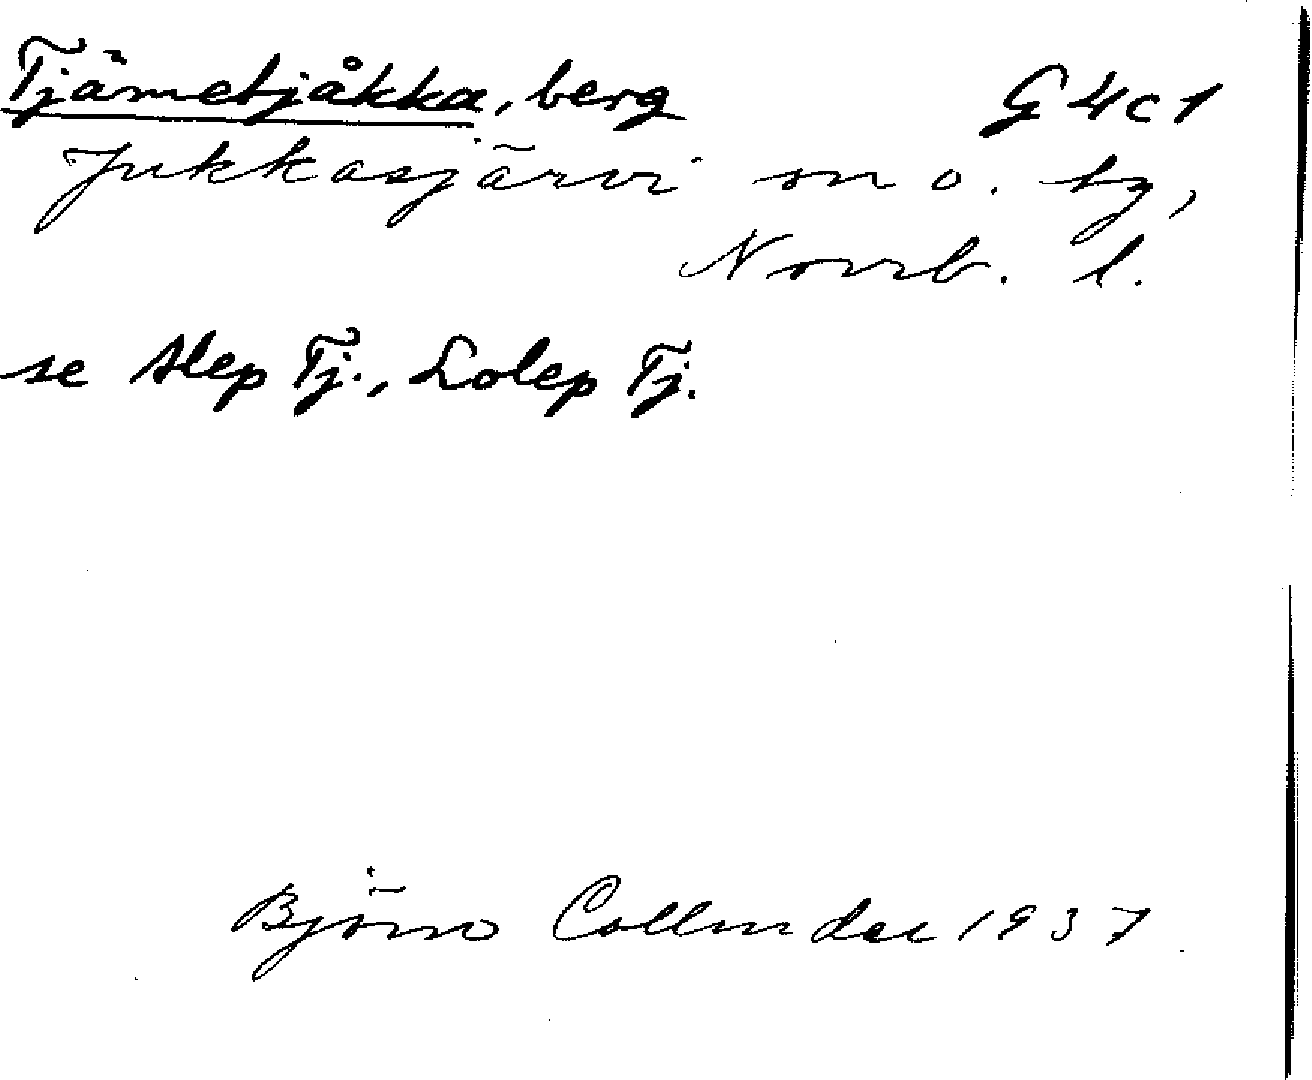 Tjämetjåkka, berg G4c1
Jukkasjärvi sn o. tg,
Norrb. l.
se Alep Tj., Lolep Tj.
Björn Collinder 1937